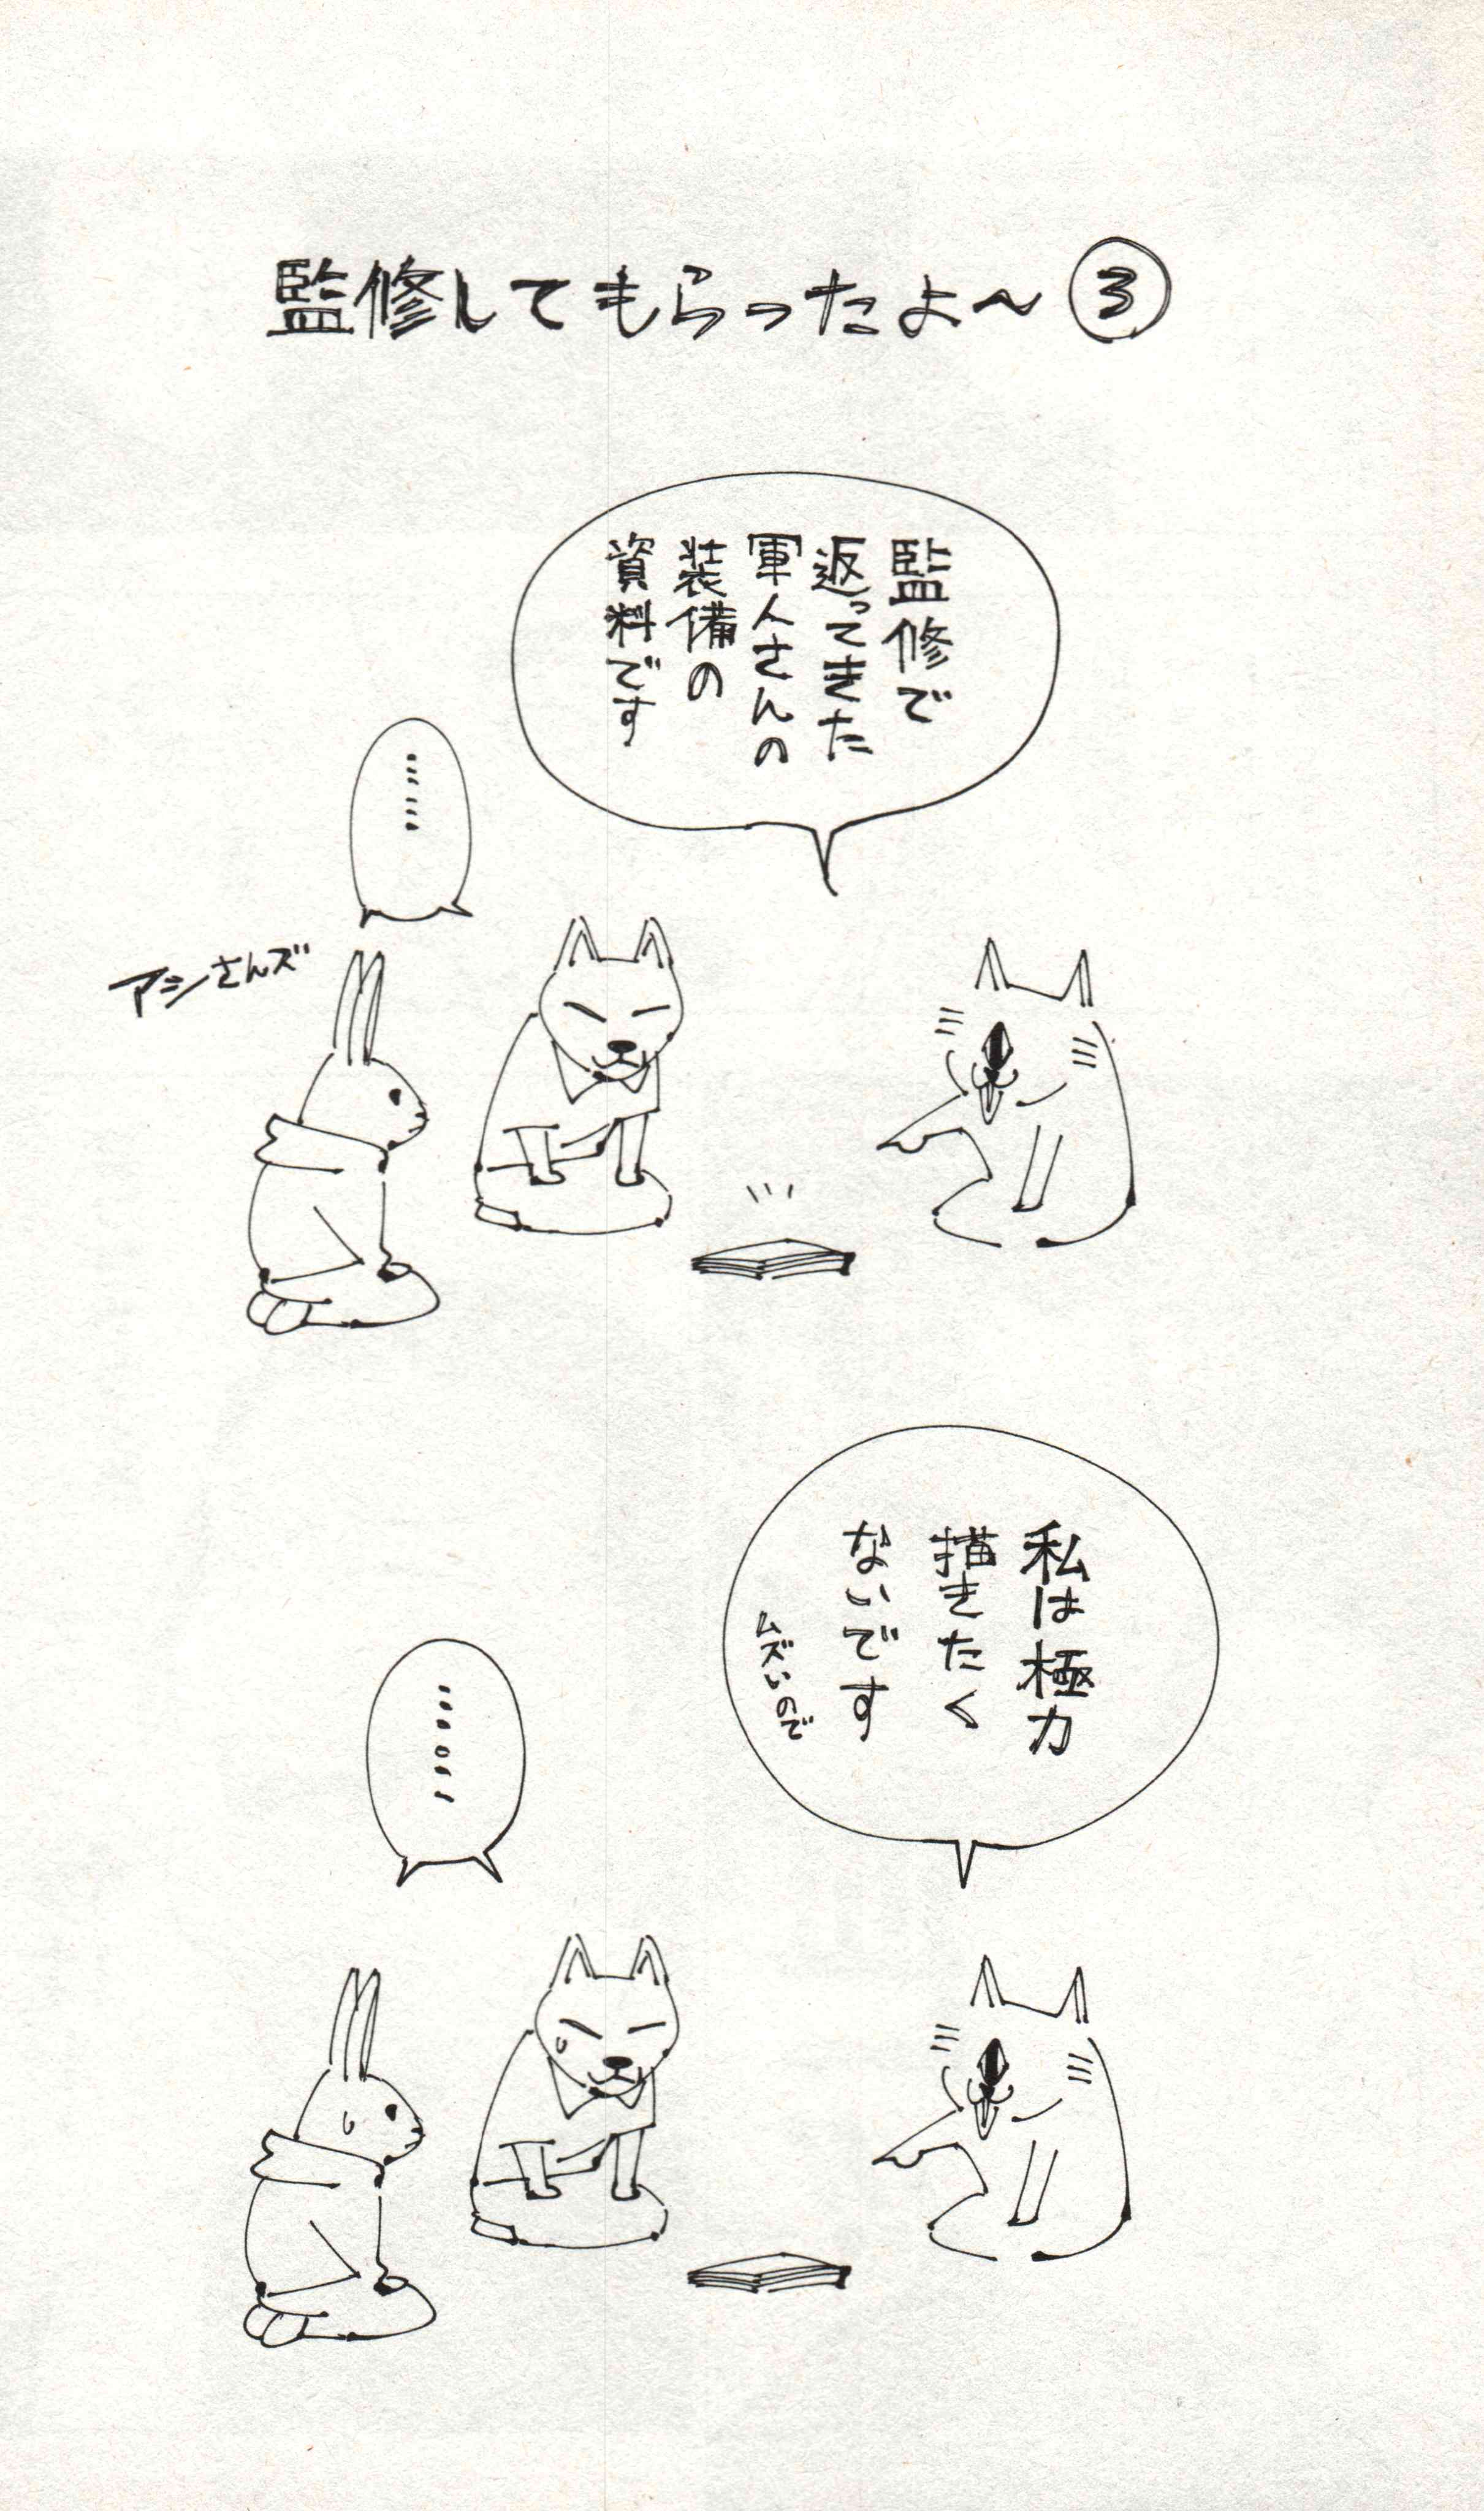 監修してもらったよ〜③
監修で
返ってきた
軍人さんの
装備の
資料です
……
アシさんズ
私は極力
描きたく
ないです
ムズいので
……